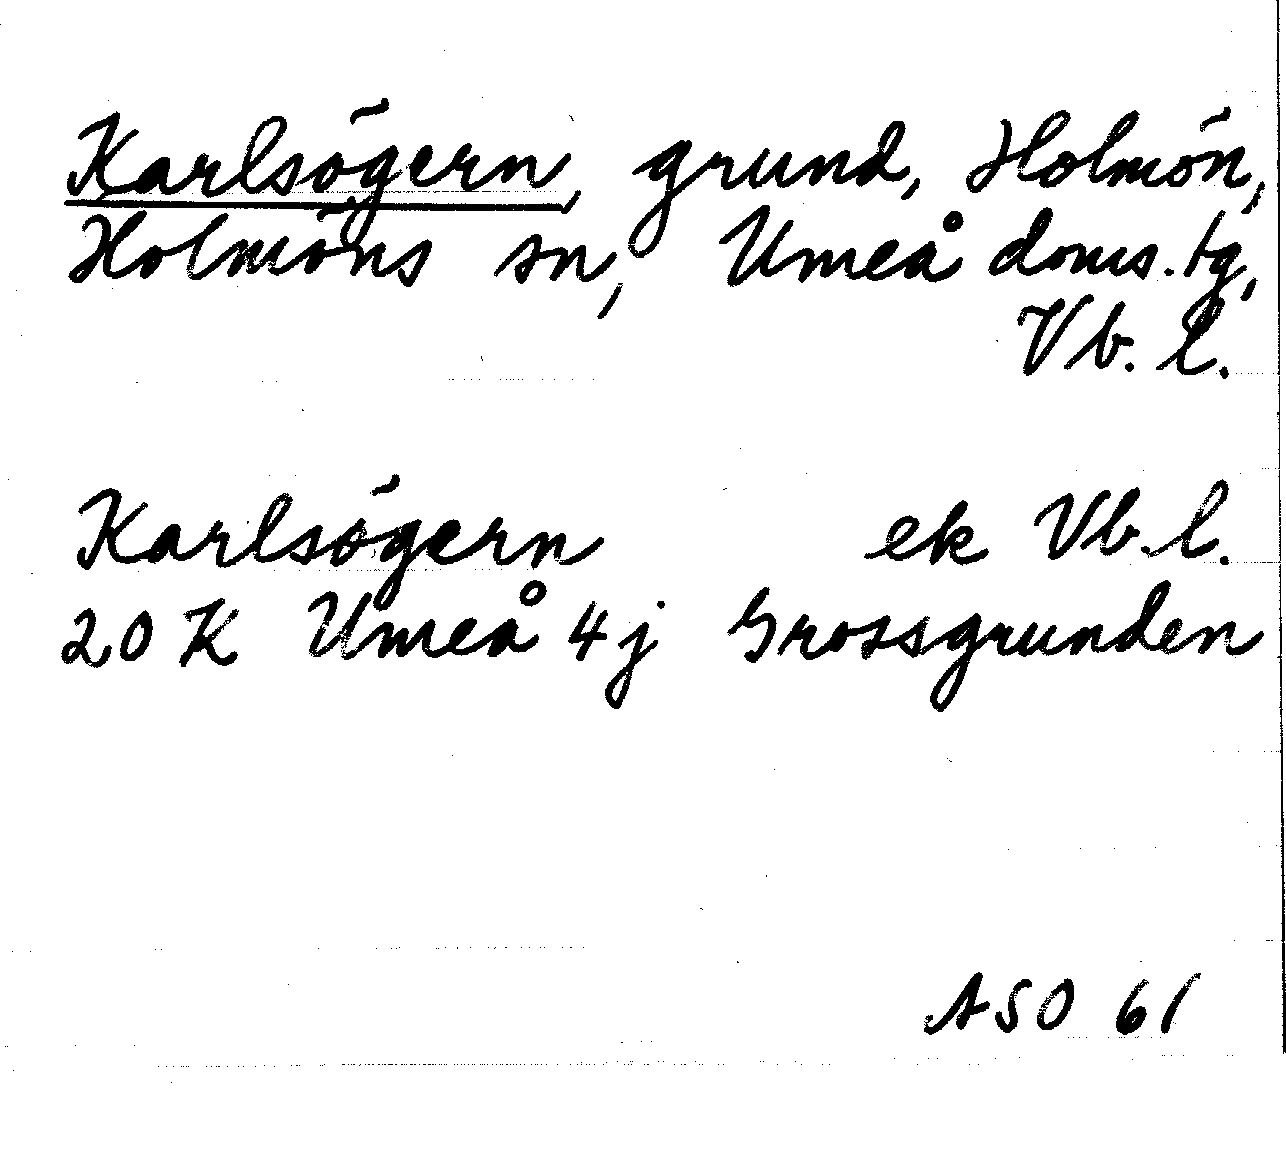 Karlsögern, grund, Holmön,
Holmöns sn, Umeå doms. tg,
Vb. l.
Karlsögern ek Vb. l.
20 K Umeå 4 j Grossgrunden
ASO 61